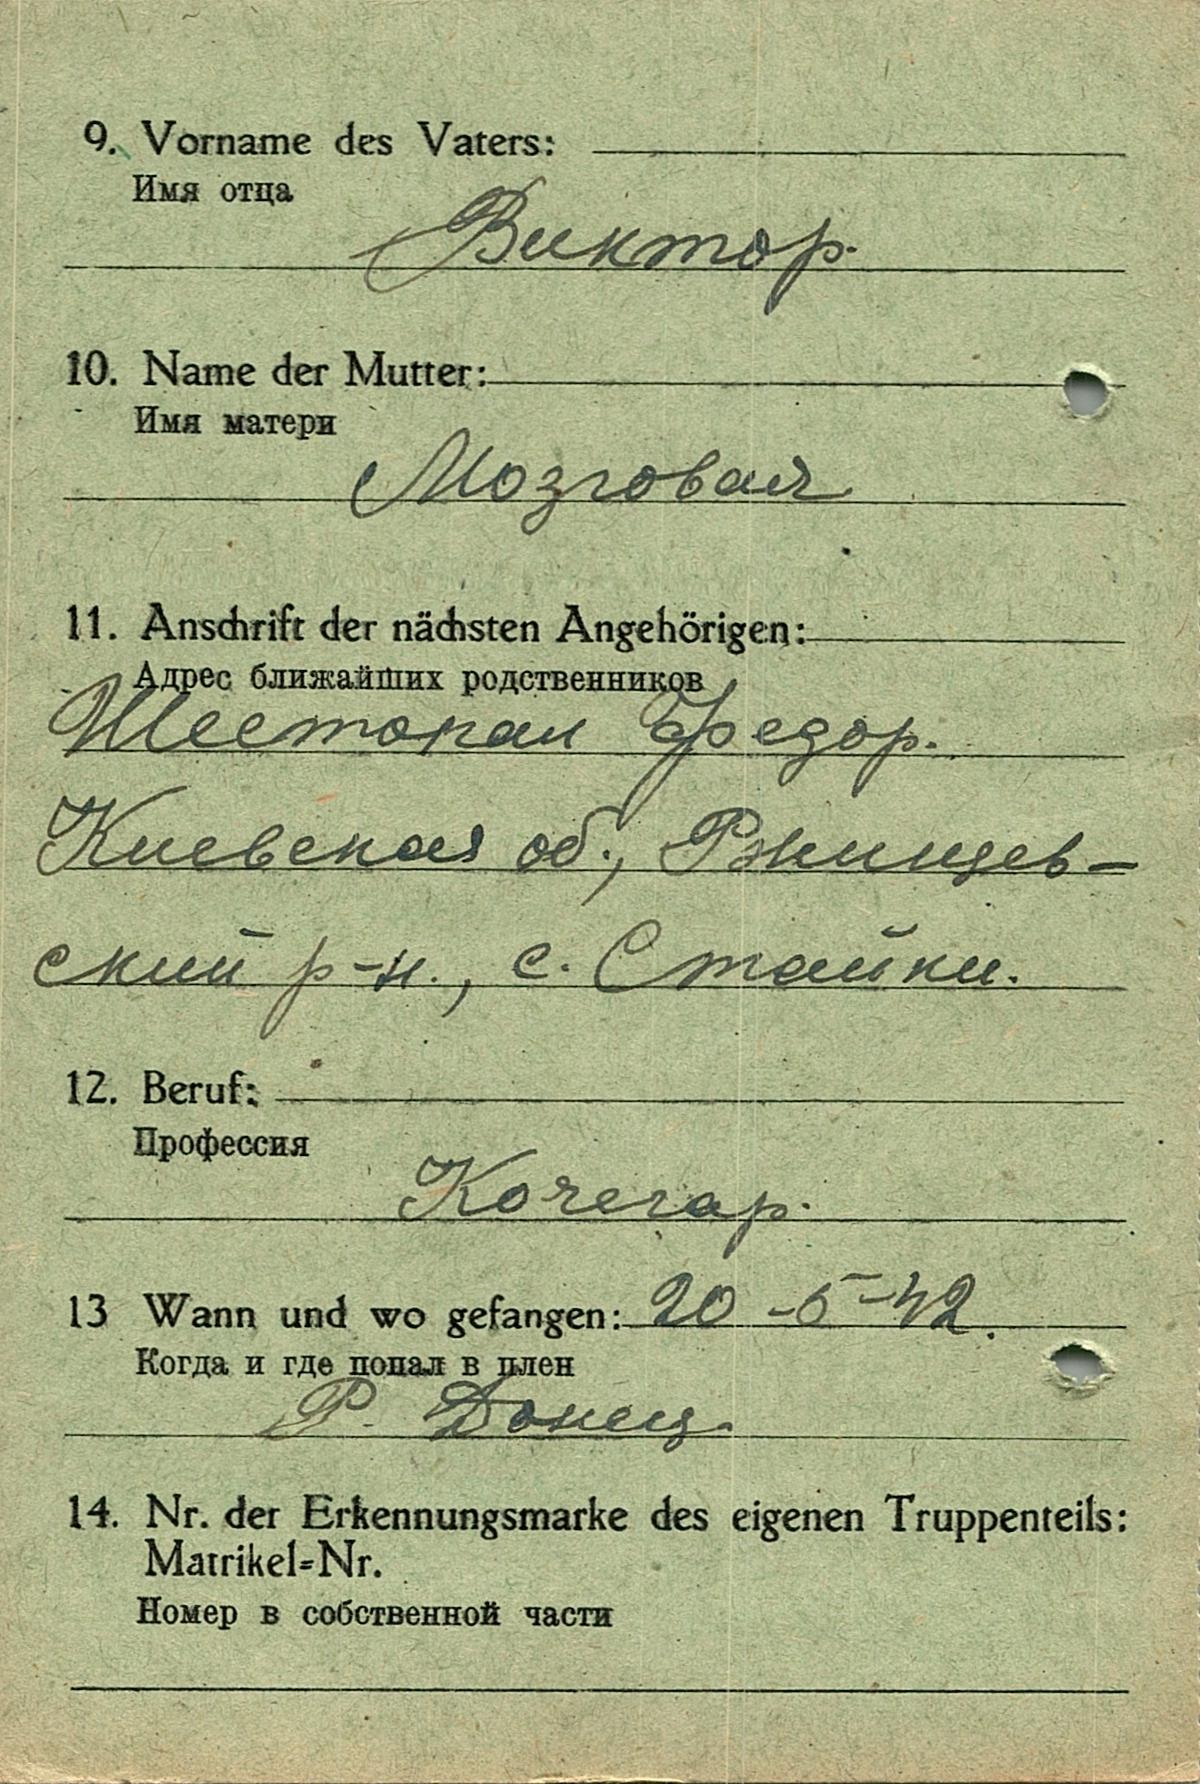 9. Vorname des Vaters:
Имя отца
Виктор.
10. Name der Mutter:
Имя матери
Мозговая
11. Anschrift der nächsten Angehörigen:
Адрес ближайших родственников
Шестопал Федор.
Киевская об., Ржищев-
ский р-н., с. Стайки.
12. Beruf:
Профессия
Кочегар.
13 Wann und wo gefangen: 20-5-42.
Когда и где попал в плен
Р. Донец.
14. Nr. der Erkennungsmarke des eigenen Truppenteils:
Matrikel-Nr.
Номер в собственной части